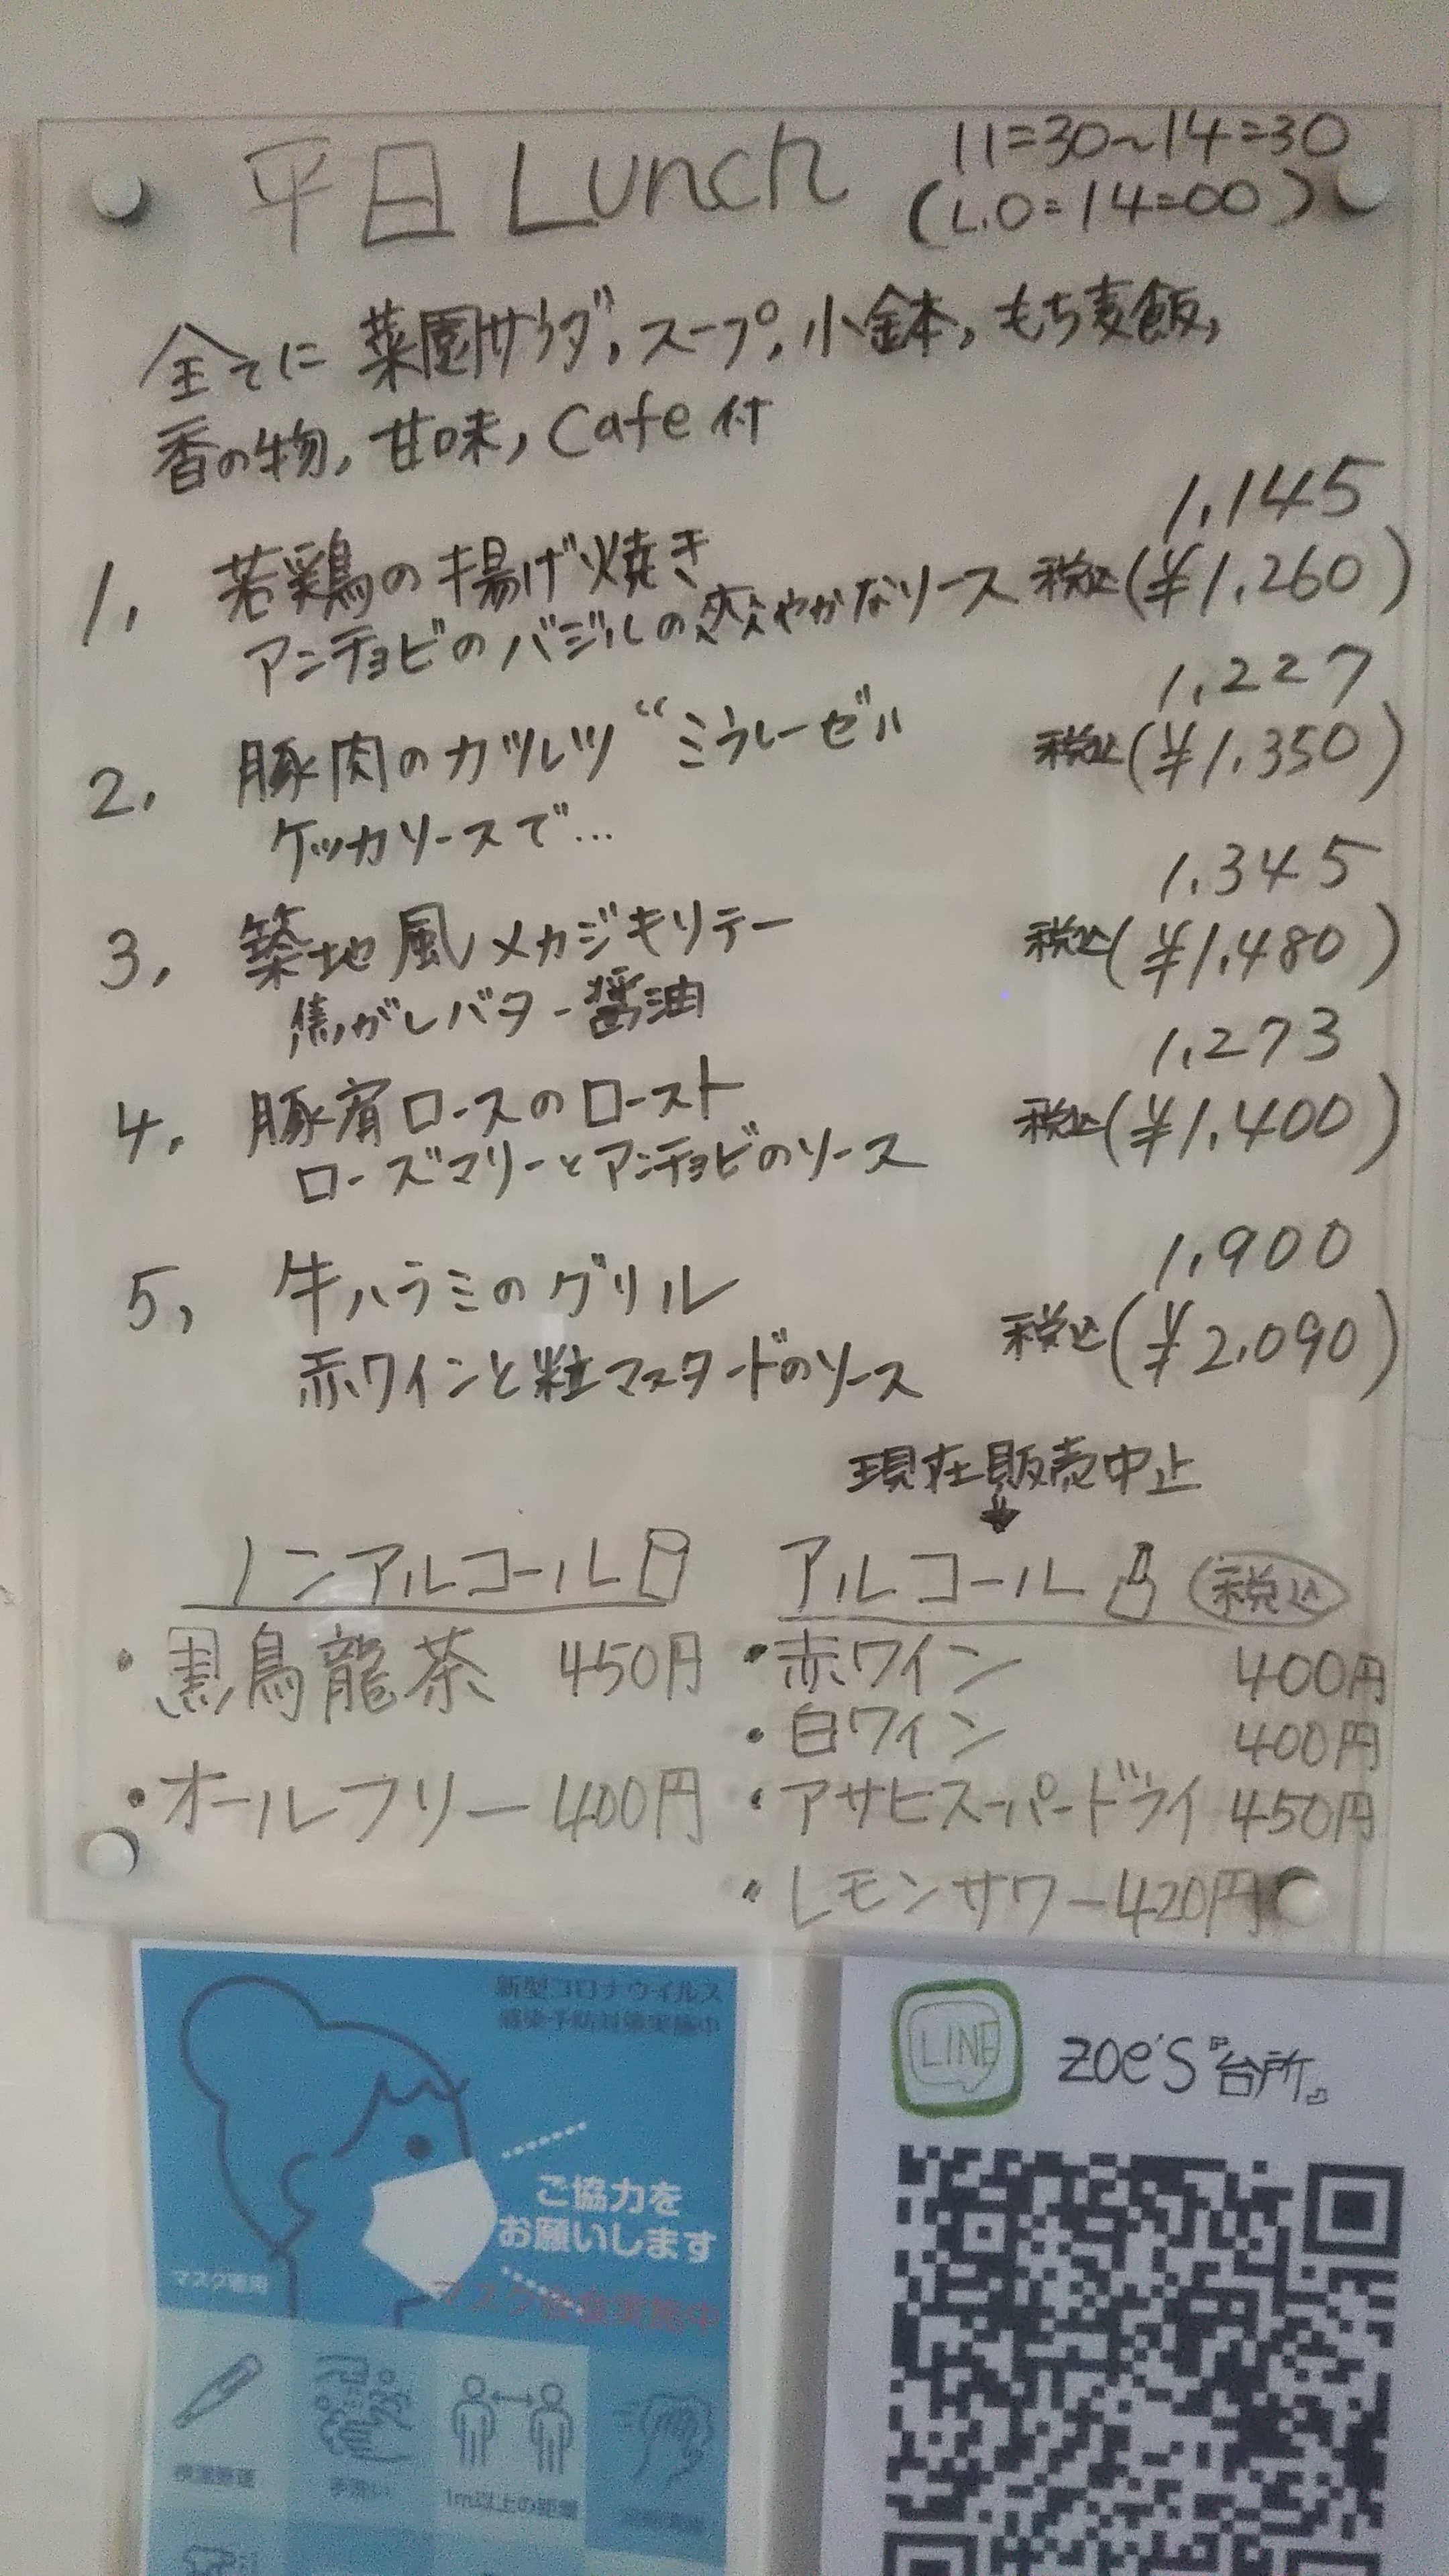 平日 Lunch
11=30〜14=30
(L.O=14=00)
全てに 菜園サラダ, スープ, 小鉢, もち麦飯,
香の物, 甘味, Cafe付
1,145
1, 若鶏の揚げ焼き
アンチョビのバジルの爽やかなソース 税込(¥1,260)
1,227
2, 豚肉のカツレツ “ミラレーゼ”
税込(¥1,350)
ケッカソースで…
1,345
3, 築地風メカジキソテー
税込(¥1,480)
焦がしバター醤油
1,273
4, 豚肩ロースのロースト
税込(¥1,400)
ローズマリーとアンチョビのソース
1,900
5, 牛ハラミのグリル
税込(¥2,090)
赤ワインと粒マスタードのソース
現在販売中止
ノンアルコール
・黒烏龍茶 450円
・オールフリー 400円
アルコール 税込
・赤ワイン 400円
・白ワイン 400円
・アサヒスーパードライ 450円
・レモンサワー 420円
新型コロナウイルス
感染予防対策実施中
ご協力を
お願いします
マスク会食実施中
マスク着用
検温
手洗い
1m以上の距離
LINE
zoe's『台所』